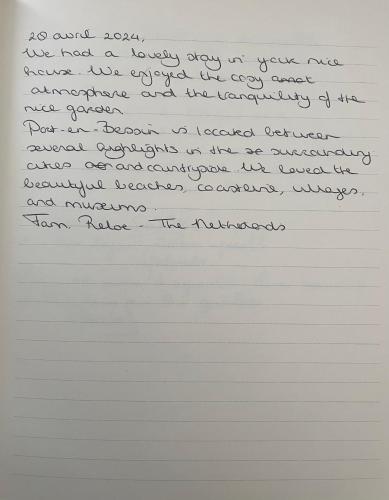 28 avril 2024,
We had a lovely stay in your nice
house. We enjoyed the cozy
atmosphere and the tranquility of the
nice garden.
Port-en-Bessin is located between
several highlights in the surrounding
cities and countryside. We loved the
beautiful beaches, coastline, villages,
and museums.
Fam. Reloe - The Netherlands